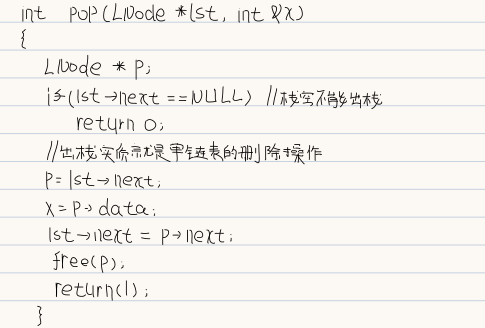 int pop(LNode *lst, int &x)
{
LNode * p;
if(lst→next ==NULL) //栈空不能出栈
return 0;
//出栈实际就是单链表的删除操作
p= lst→next;
x= p→data;
lst→next = p→next;
free(p);
return(1);
}